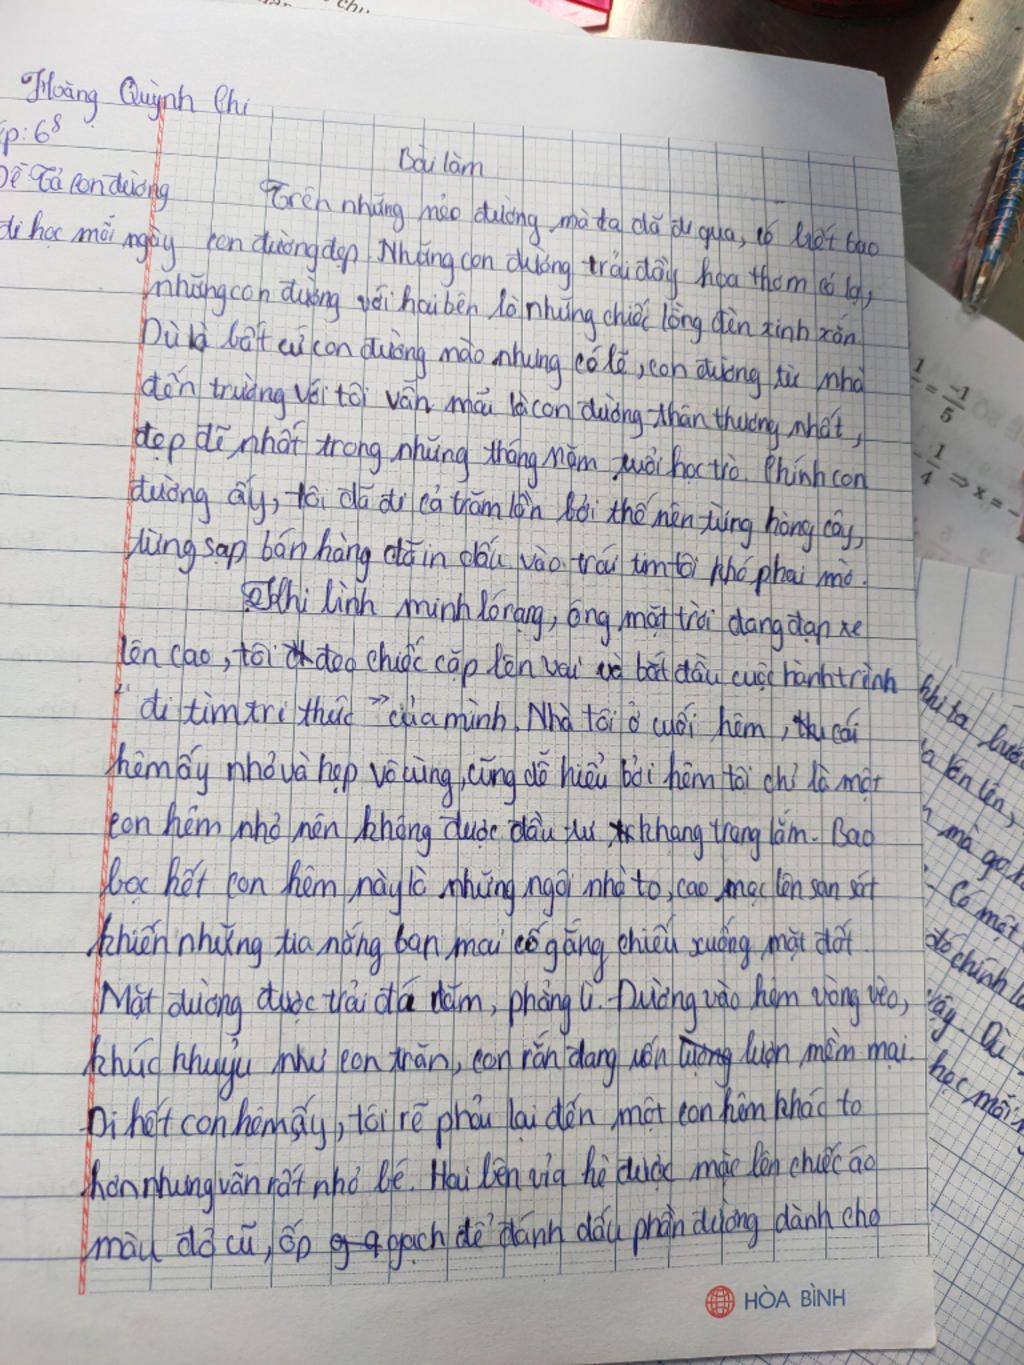 Hoàng Quỳnh Chi
Lớp: 6⁸
Đề Tả con đường
đi học mỗi ngày
Bài làm
Trên những nẻo đường mà ta đã đi qua, có biết bao
con đường đẹp. Những con đường trải đầy hoa thơm cỏ lạ,
những con đường với hai bên là những chiếc lồng đèn xinh xắn.
Dù là bất cứ con đường nào nhưng có lẽ, con đường từ nhà
đến trường với tôi vẫn mãi là con đường thân thương nhất,
đẹp đẽ nhất trong những tháng năm tuổi học trò. Chính con
đường ấy, tôi đã đi cả trăm lần bởi thế nên từng hàng cây,
từng sạp bán hàng đã in dấu vào trái tim tôi khó phai mờ.
Khi bình minh ló rạng, ông mặt trời đang đạp xe
lên cao, tôi đeo chiếc cặp lên vai và bắt đầu cuộc hành trình
"đi tìm tri thức" của mình. Nhà tôi ở cuối hẻm, cái
hẻm ấy nhỏ và hẹp vô cùng, cũng dễ hiểu bởi hẻm tôi chỉ là một
con hẻm nhỏ nên không được đầu tư khang trang lắm. Bao
bọc hết con hẻm này là những ngôi nhà to, cao mọc lên san sát
khiến những tia nắng ban mai cố gắng chiếu xuống mặt đất.
Mặt đường được trải đá dăm, phẳng lì. Đường vào hẻm vòng vèo,
khúc khuỷu như con trăn, con rắn đang uốn lượn mềm mại.
Đi hết con hẻm ấy, tôi rẽ phải lại đến một con hẻm khác to
hơn nhưng vẫn rất nhỏ bé. Hai bên vỉa hè được mặc lên chiếc áo
màu đỏ cũ, ốp gạch để đánh dấu phần đường dành cho
HÒA BÌNH
1 = -1/5
1/4 ⇒ x = -
khi ta bước
lên lên,
mà gọi
Có một
đó chính là
vậy. Dù
học mỗi